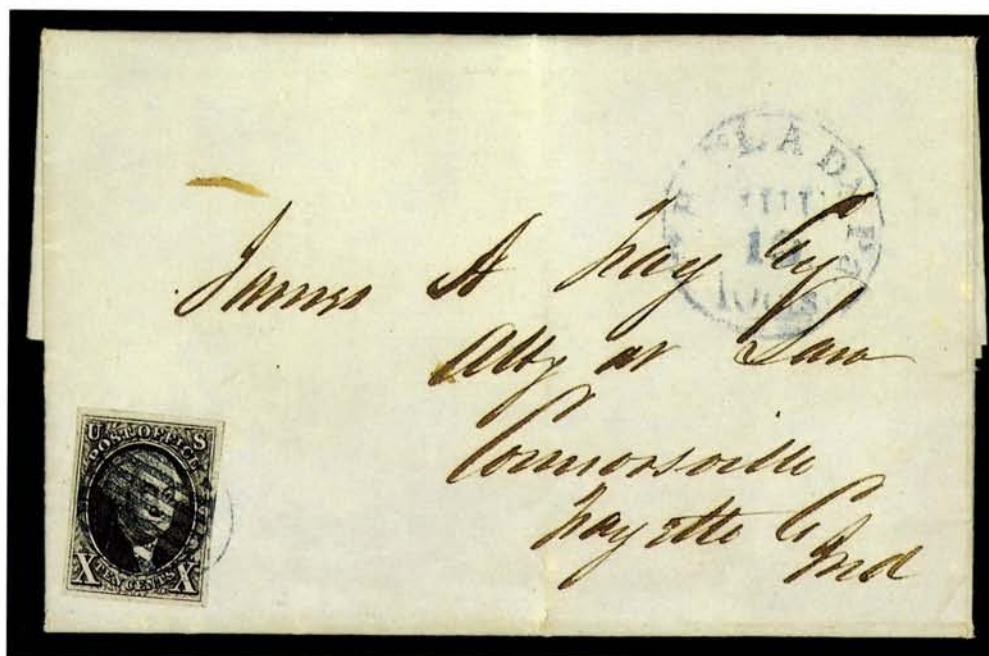 10cts
James A Fay Esq
Atty at Law
Connorsville
Fayette Co
Ind
U S
POST OFFICE
X TEN CENTS X